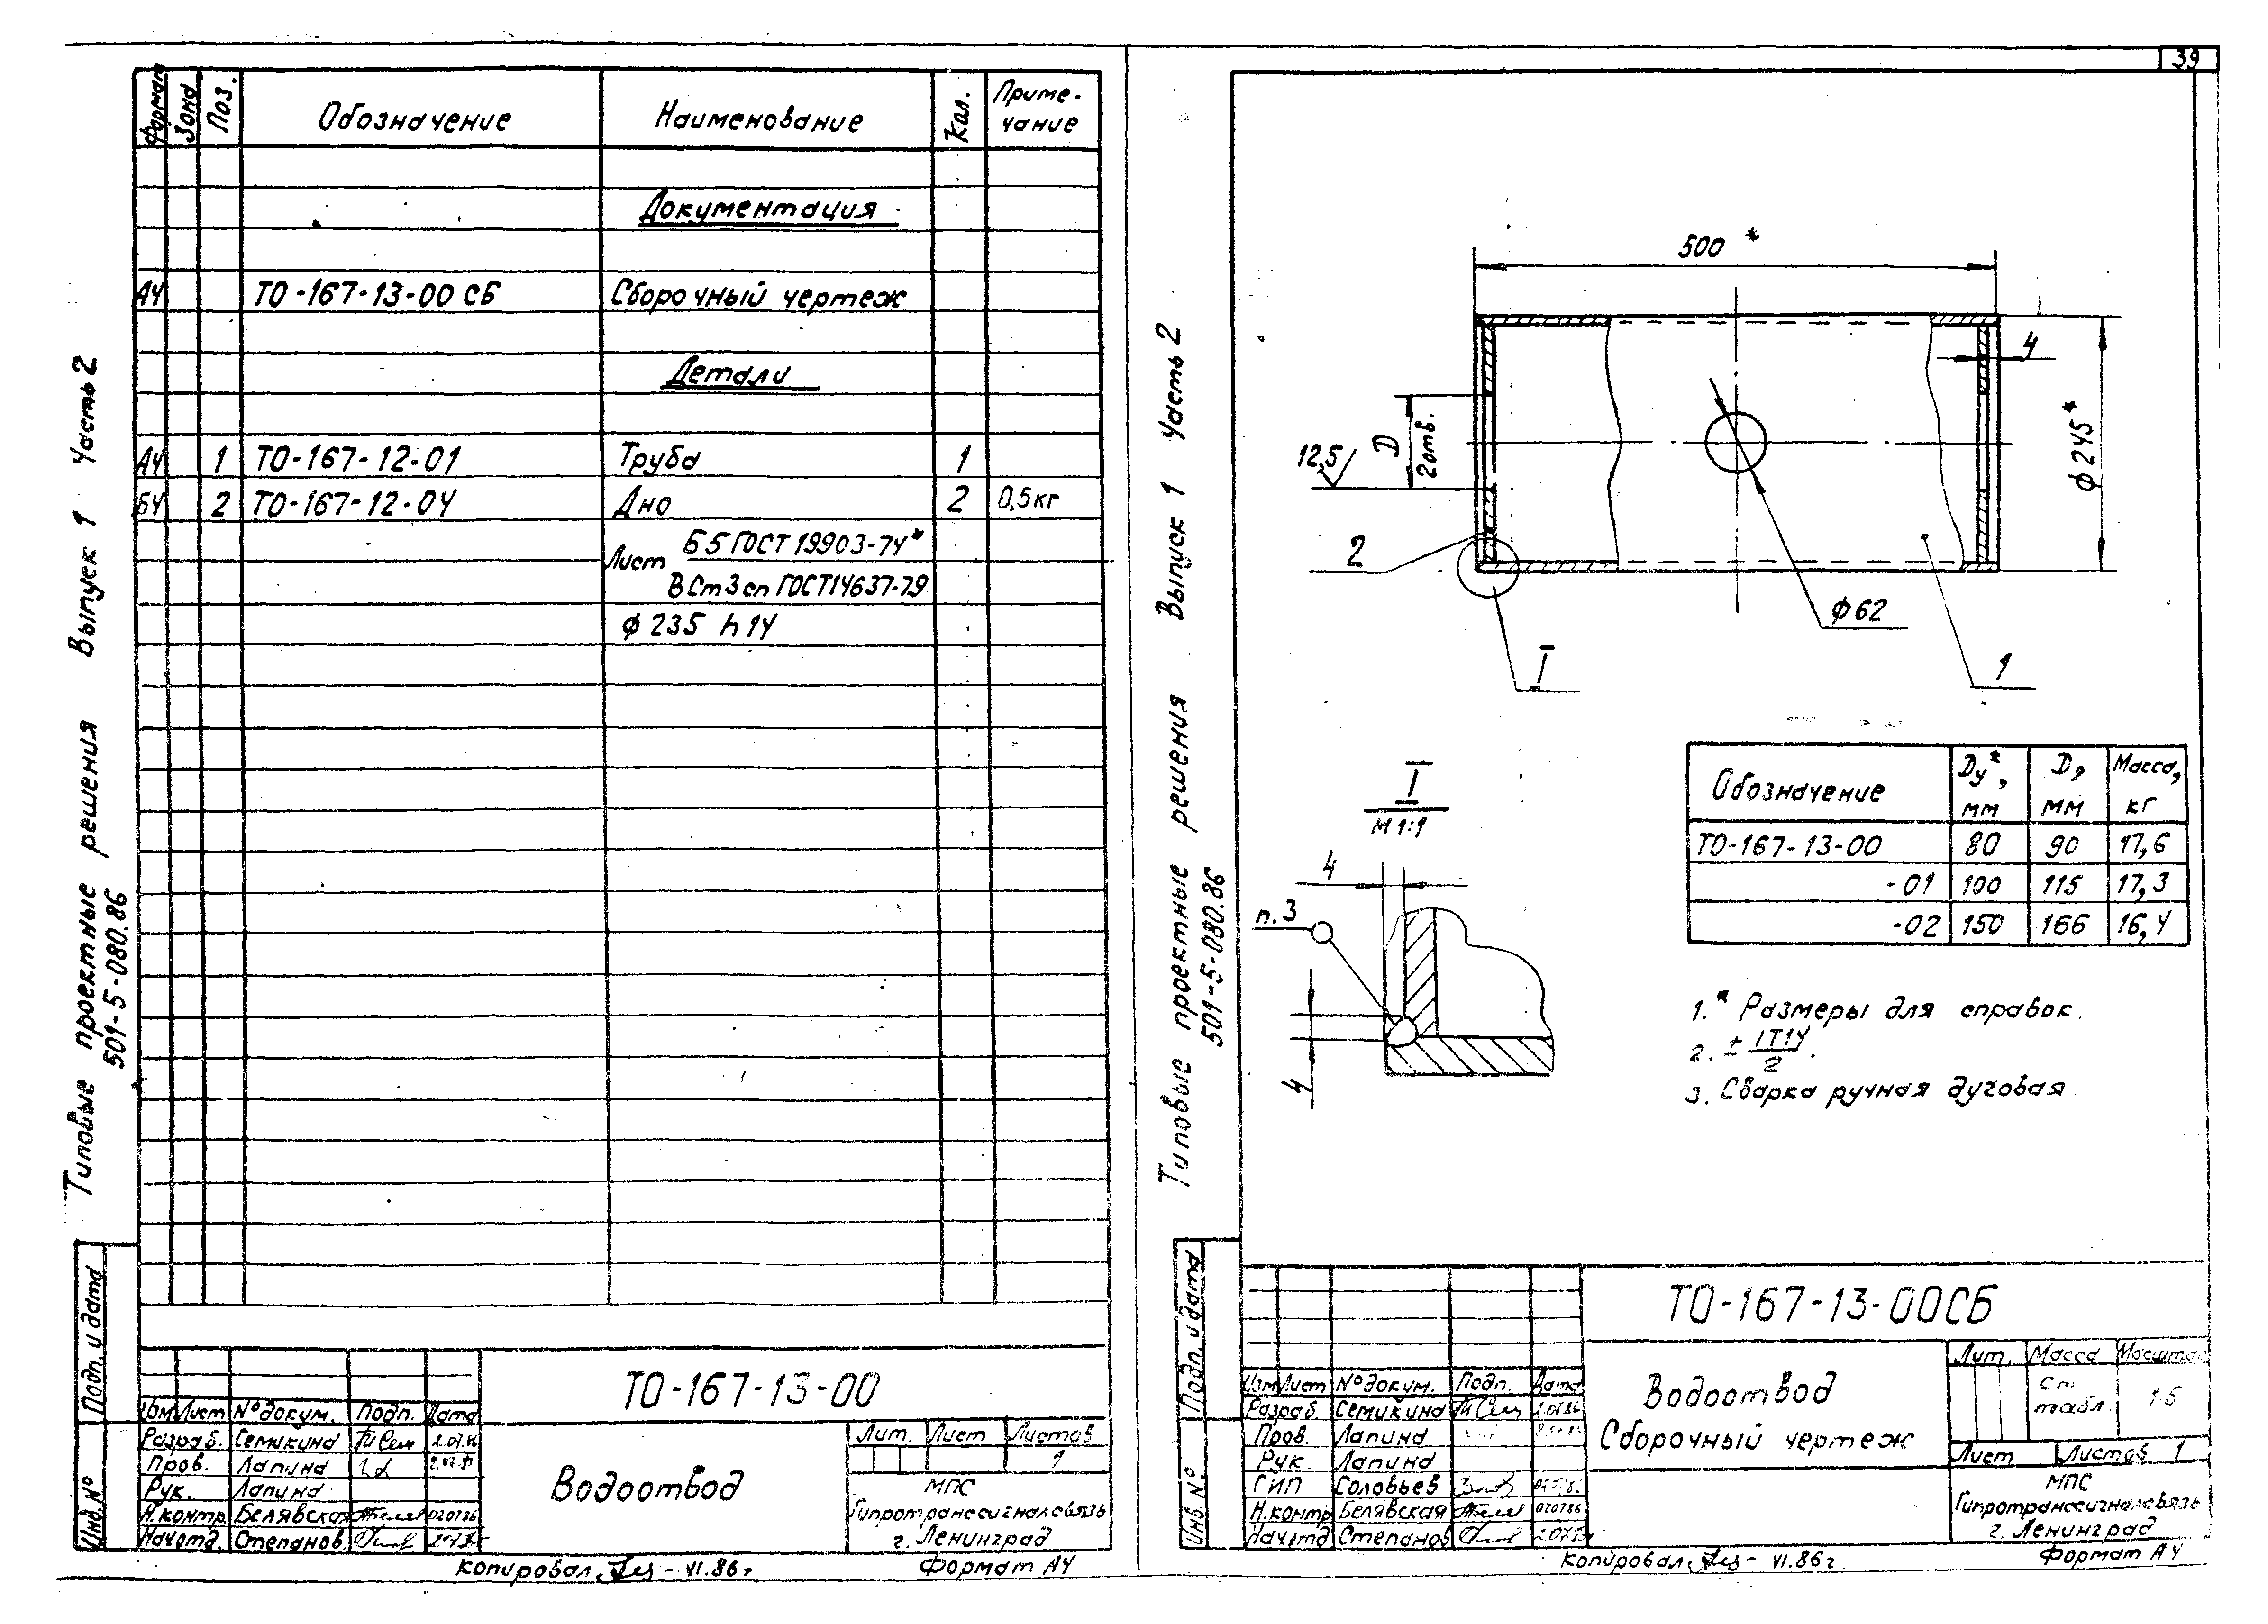 39
Типовые проектные решения Выпуск 1 Часть 2
501-5-080.86
Формат Зона Поз. Обозначение Наименование Кол. Приме-
чание
Документация
А4 ТО-167-13-00 СБ Сборочный чертеж
Детали
А4 1 ТО-167-12-01 Труба 1
БЧ 2 ТО-167-12-04 Дно 2 0,5кг
Лист Б5 ГОСТ 19903-74*
ВСт3сп ГОСТ14637-79
ф 235 h14
Подп. и дата
Инв. №
ТО-167-13-00
Изм Лист № докум. Подп. Дата
Разраб. Семикина
Пров. Лапина
Рук. Лапина
Н.контр Белявская 020786
Нач.отд. Степанов
Водоотвод
Лит. Лист Листов
1
МПС
Гипротранссигналсвязь
г. Ленинград
Копировал VI.86г.
Формат А4
Типовые проектные решения Выпуск 1 Часть 2
501-5-080.86
500 *
4
D
2отв.
12,5
ф 245 *
2
ф 62
I
1
I
М 1:1
4
п.3
4
Обозначение Dу*, мм D, мм Масса, кг
ТО-167-13-00 80 90 17,6
-01 100 115 17,3
-02 150 166 16,4
1.* Размеры для справок.
2. ± IT14/2.
3. Сварка ручная дуговая.
Подп. и дата
Инв. №
ТО-167-13-00СБ
Изм Лист № докум. Подп. Дата
Разраб. Семикина
Пров. Лапина
Рук. Лапина
ГИП Соловьев
Н.контр Белявская 020786
Нач.отд Степанов
Водоотвод
Сборочный чертеж
Лит. Масса Масштаб
См.
табл. 1:5
Лист Листов 1
МПС
Гипротранссигналсвязь
г. Ленинград
Копировал VI.86г.
Формат А4